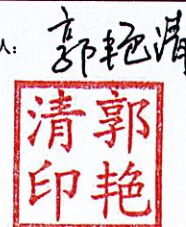 人：郭艳清
郭艳
清印